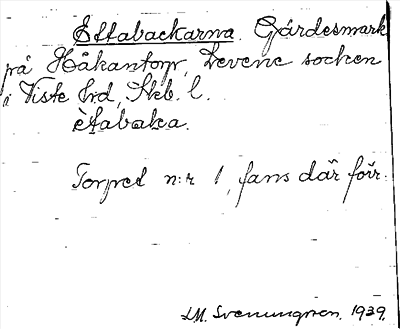 Ettabackarna. Gärdesmark
på Håkantorp, Levene socken
i Viste hrd, Skb. l.
ètabaka.
Torpet n:r 1, fans där förr.
LM. Svenungsson. 1939.